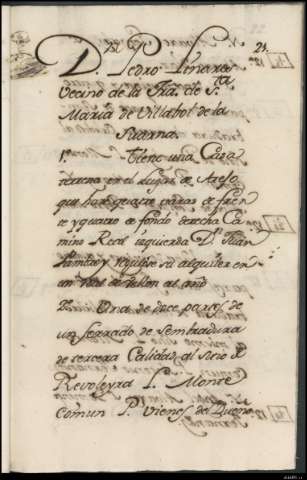 21.
D. Pedro Linares
Vecino de la Fra. de Sta.
Maria de Villabol de la
Suarna.
1ª Tiene una Casa
terrena en el Lugar de
que hace quatro varas de fren
te y quatro de fondo derecha Ca
mino Real izquierda Dn. Juan
su alquiler en
un real de vellon al año
2ª Otra de doce pares de
un ferrado de Sembradura
de tercera Calidad, al sitio de
Revoleyra L. Monte
Comun P. vienes del Dueño